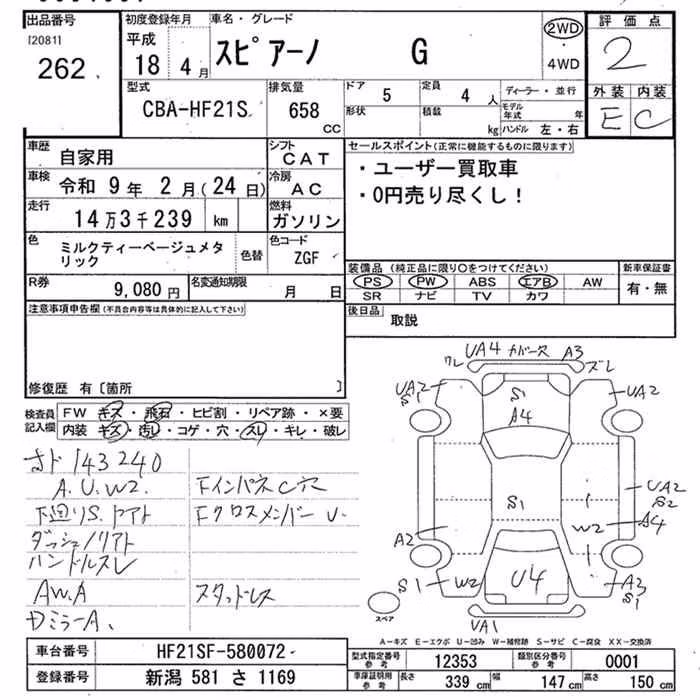 出品番号
120811
262
初度登録年月
平成
18 4 月
車名・グレード
スピアーノ G
2WD
・
4WD
評価点
2
外装 内装
E C
型式
CBA-HF21S
排気量
658
CC
ドア
5
定員
4 人
形状
積載
kg
ディーラー・並行
モデル年式 年
ハンドル 左・右
車歴
自家用
シフト
CAT
車検
令和 9 年 2 月 (24 日)
冷房
AC
走行
14 万 3 千 239 km
燃料
ガソリン
色
ミルクティーベージュメタリック
色替
色コード
ZGF
R券
9,080 円
名変通知期限
月 日
セールスポイント(正常に機能するものに限ります)
・ユーザー買取車
・0円売り尽くし!
装備品 (純正品に限り○をつけてください)
PS PW ABS エアB AW
SR ナビ TV カワ
新車保証書
有・無
後日品
取説
注意事項申告欄(不具合内容等は具体的に記入して下さい)
修復歴 有〔箇所 〕
検査員記入欄
FW キズ・飛石・ヒビ割・リペア跡・×要
内装 キズ・汚レ・コゲ・穴・スレ・キレ・破レ
オド 143240
A.U.W2.
下廻りS.アマト
ダッシュノリアト
ハンドルスレ
AW.A
Dミラー A.
FインパネC穴
Fクロスメンバー U.
スタッドレス
ワレ UA4 カバース A3 ズレ
UA2
S1
S1
A4
UA2
S1
UA2
S2
A4
W2
A2
S1
W2
U4
A3
S1
UA1
スペア
A-キズ E-エクボ U-凹み W-補修跡 S-サビ C-腐食 XX-交換済
車台番号
HF21SF-580072
登録番号
新潟 581 さ 1169
型式指定番号
参考
12353
類別区分番号
参考
0001
車庫証明用
参考
長さ 339 cm
幅 147 cm
高さ 150 cm